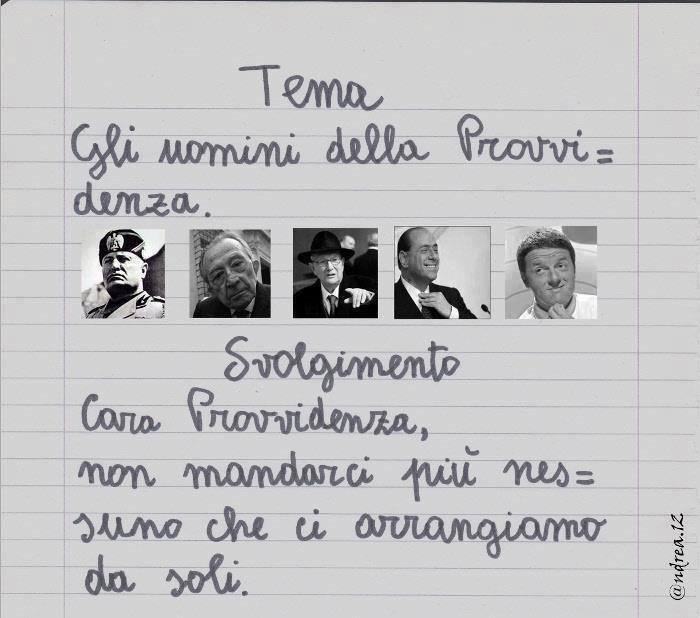 Tema
Gli uomini della Provvi=
denza.
Svolgimento
Cara Provvidenza,
non mandarci più nes=
suno che ci arrangiamo
da soli.
@ndrea.12